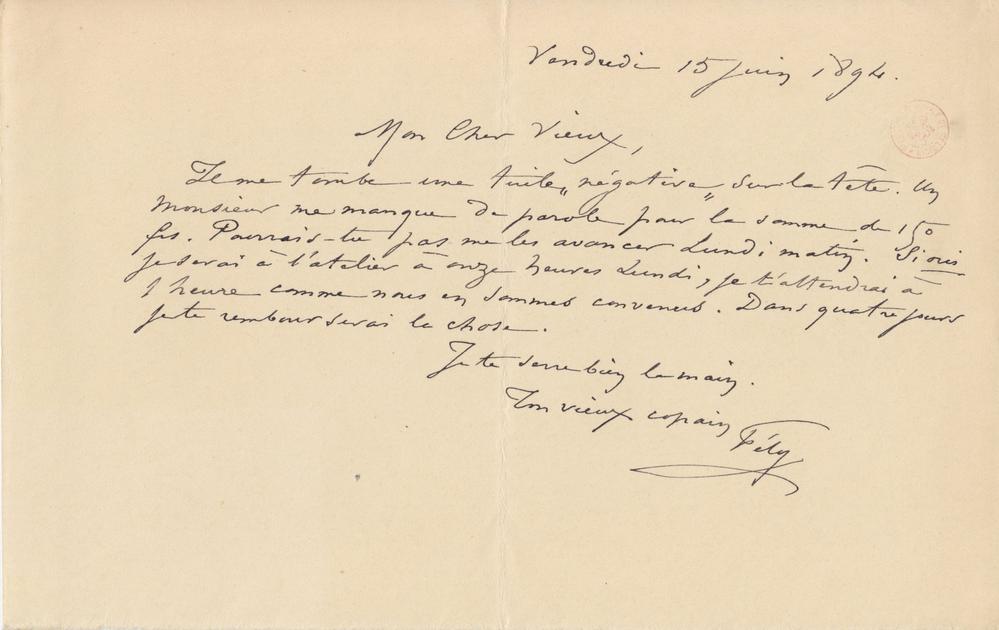 Vendredi 15 juin 1894.
Mon Cher Vieux,
Il me tombe une tuile „ négative „ sur la tête. Un
Monsieur me manque de parole pour la somme de 150
frs. Pourrais-tu pas me les avancer Lundi matin. Si oui
je serai à l'atelier à onze heures Lundi, je t'attendrai à
1 heure comme nous en sommes convenus. Dans quatre jours
je te rembourserai la chose.
Je te serre bien la main.
Ton vieux copain